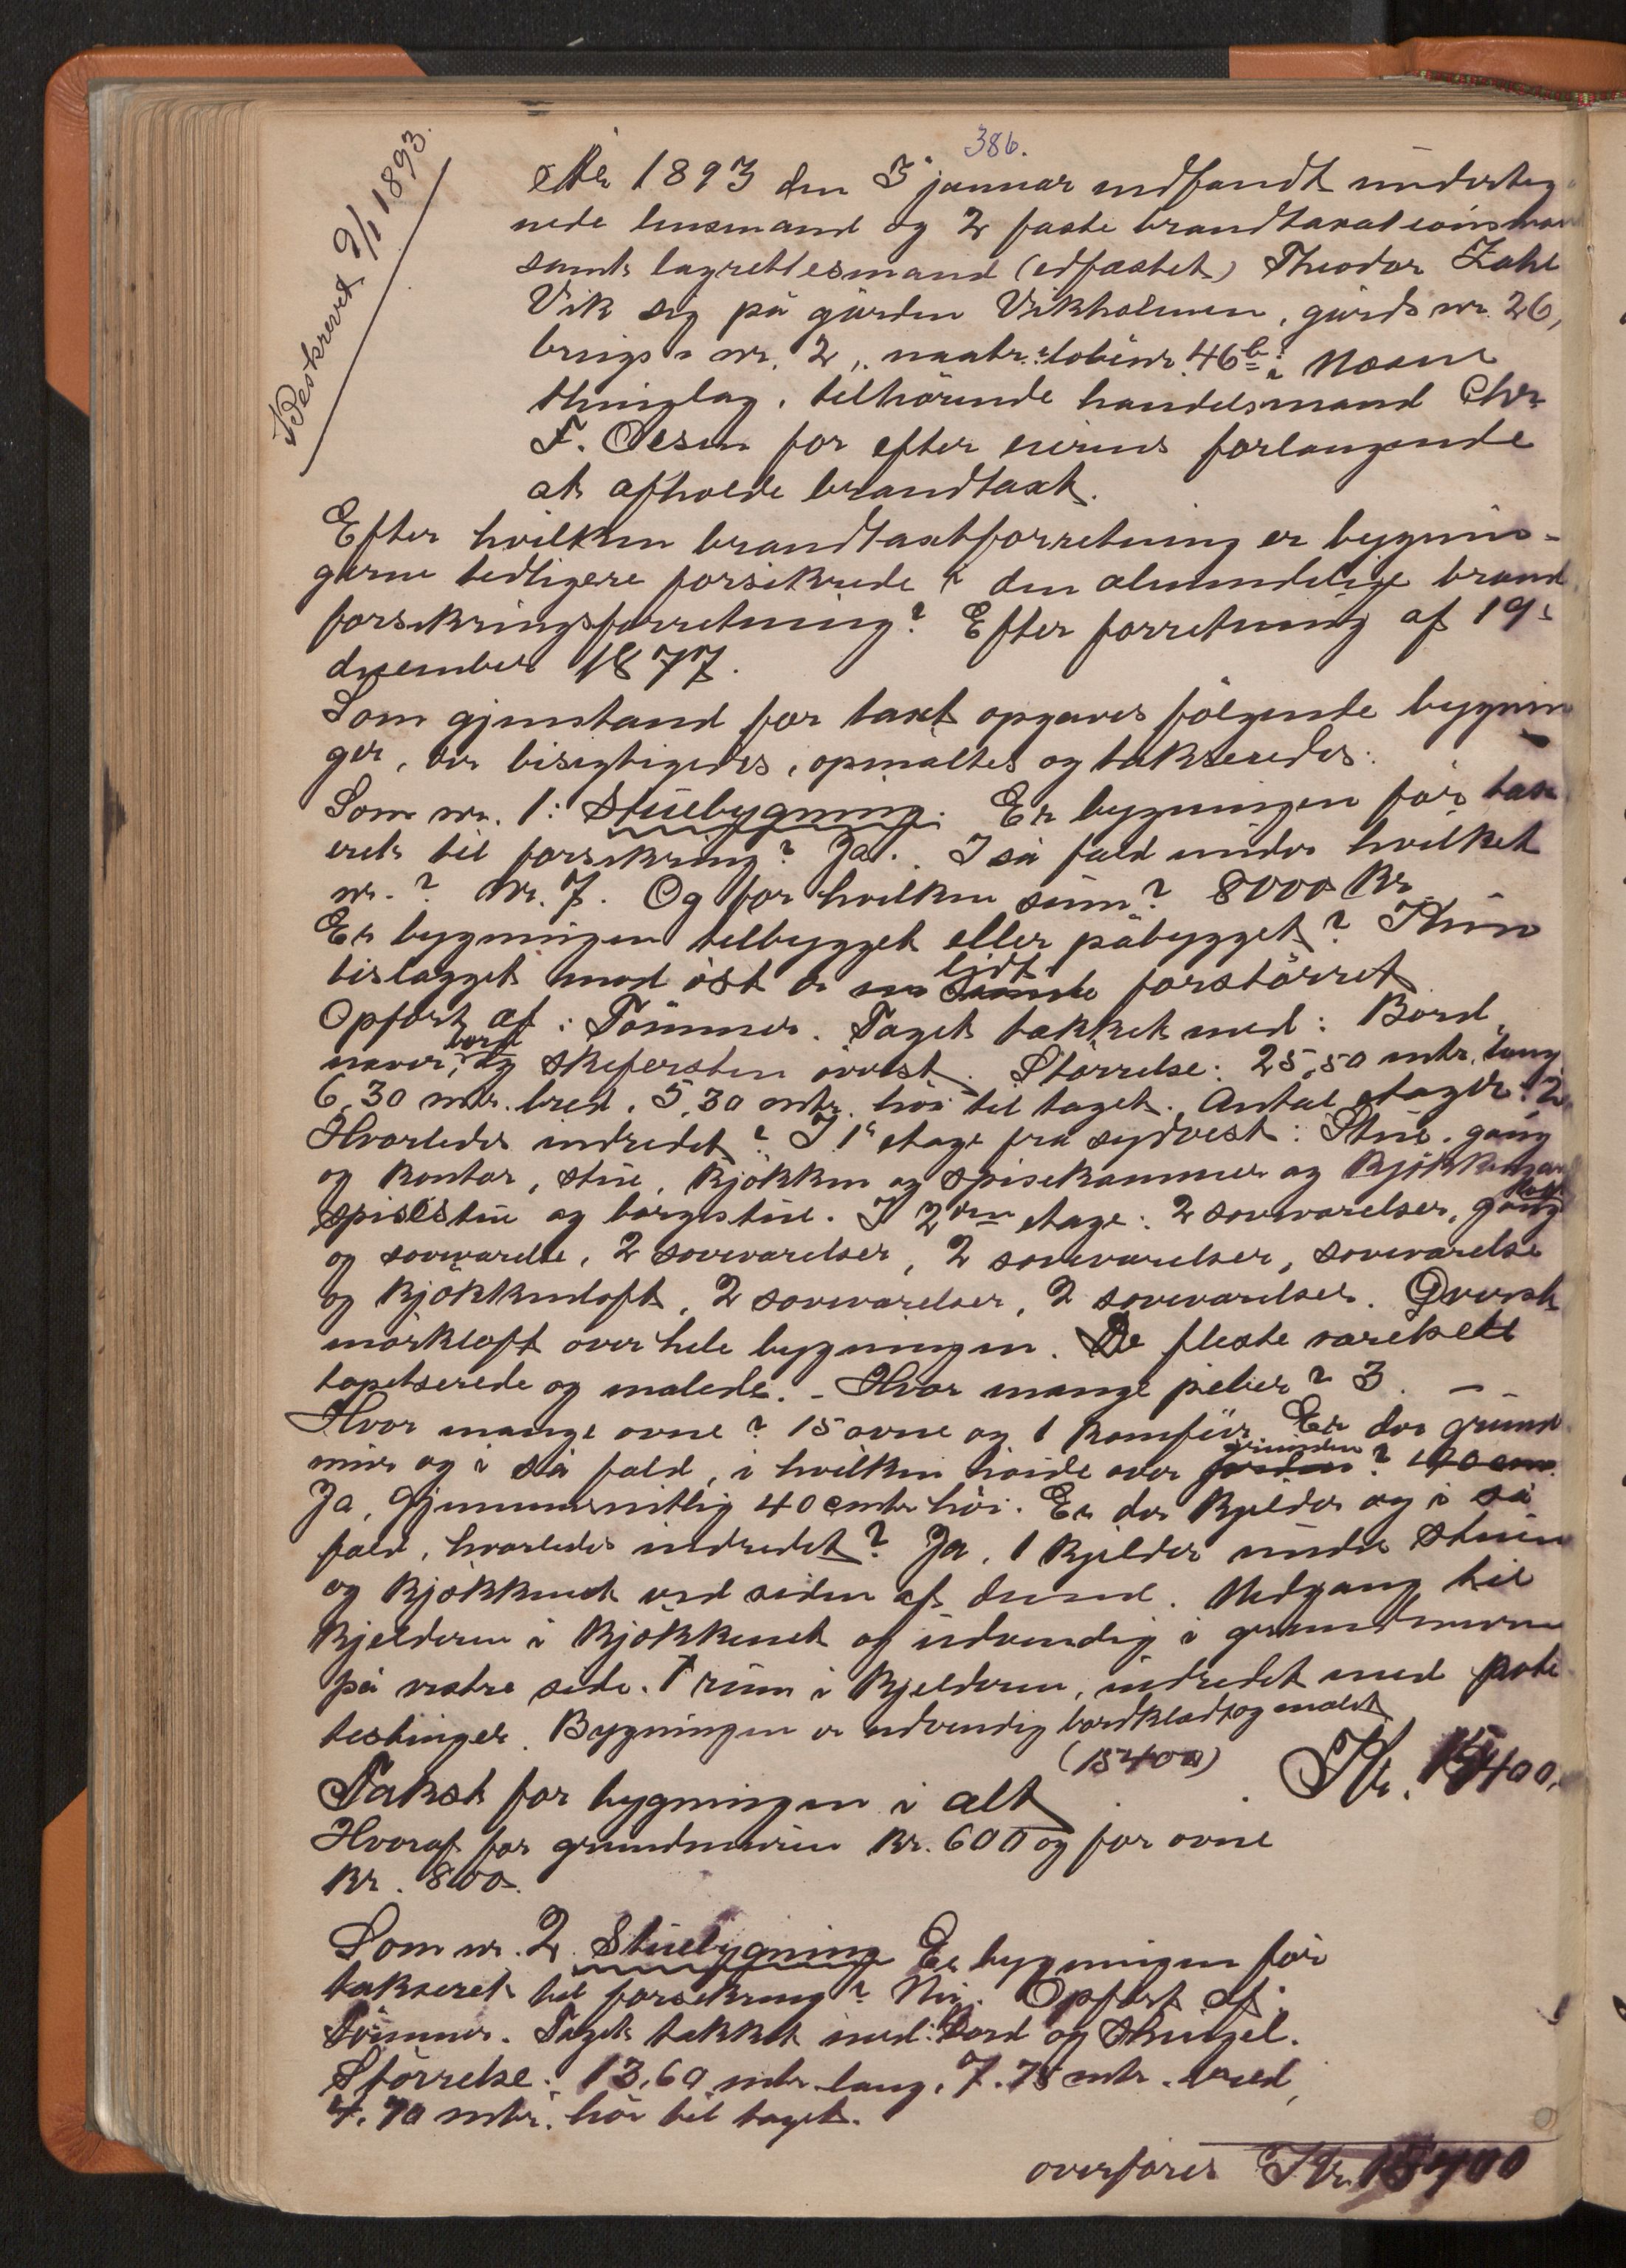 386.
Beskrevet 9/1 1893.
År 1893 den 3 januar indfandt underteg
nede lensmand og 2 faste brandtaxationsmænd
samt lagrettesmand (edfæstet) Theodor Zahl
Vik sig på gården Vikholmen, gårds nr. 26,
brugs nr. 2, matr. løbenr. 46b i Næsne
thinglag, tilhörende handelsmand Chr.
F. Olsen for efter eierens forlangende
at afholde brandtaxt.
Efter hvilken brandtaxtforretning er bygnin-
gerne tedligere forsikrede i den almindelige brand
forsikringsforretning? Efter forretning af 19.
december 1877.
Som gjenstand for taxt opgaves fölgende bygnin
ger, der besigtigedes, opmåltes og takseredes:
Som nr. 1: Stuebygning. Er bygningen för tax
eret til forsikring? Ja. I så fald under hvilket
nr.? Nr. 7. Og for hvilken sum? 8000 Kr
Er bygningen tilbygget eller påbygget? Kun
bislagget mod öst er lidt forstörret
Opfört af: Tömmer. Taget tækket med: Bord,
næver, bord og skifersten överst. Störrelse: 25,50 mtr. lang
6,30 mtr. bred, 5,30 mtr. höi til taget. Antal etager: 2
Hvorledes indredet? I 1e etage fra sydvest: Stue, gang
og kontor, stue, kjökken og spisekammer og kjökken
spisestue og borgestue. I 2den etage: 2 soveværelser, gang
og soveværelse, 2 soveværelser, 2 soveværelser, soveværelse
og kjökkenloft, 2 soveværelser, 2 soveværelser. Överst
mörkloft over hele bygningen. De fleste værelser
tapetserede og malede. - Hvor mange piber? 3. -
Hvor mange ovne? 15 ovne og 1 komfür. Er der grund
mur og i så fald, i hvilken höide over grunden?
Ja, gjennemsnitlig 40 cmtr höi. Er der kjelder og i så
fald, hvorledes indredet? Ja, 1 kjelder under stuen
og kjökkenet ved siden af denne. Nedgang til
kjelderen i kjökkenet og udvendig i grundmuren
på vestre side. 1 rum i kjelderen, indredet med pote
testinger. Bygningen er udvendig bordklædt og malet
Takst for bygningen i alt (15400) . . Kr. 15400,
Hvoraf for grundmuren Kr. 600 og for ovne
Kr. 800.
Som nr. 2 Stuebygning Er bygningen för
takseret til forsikring? Nei. Opfört af:
Tömmer. Taget tækket med: Bord og Shingel.
Störrelse: 13,60 mtr. lang, 7.75 mtr. bred,
4,70 mtr. höi til taget.
overföres Kr. 15400